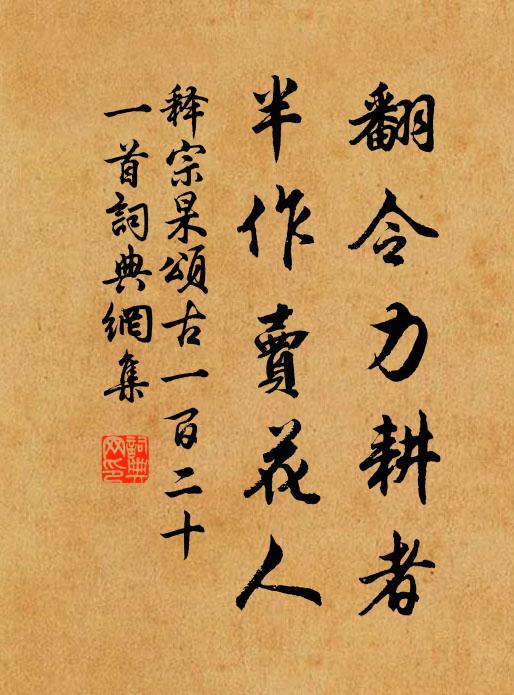 翻令力耕者
半作賣花人
释宗杲頌古一百二十
一首詞典網集
詞典
网印